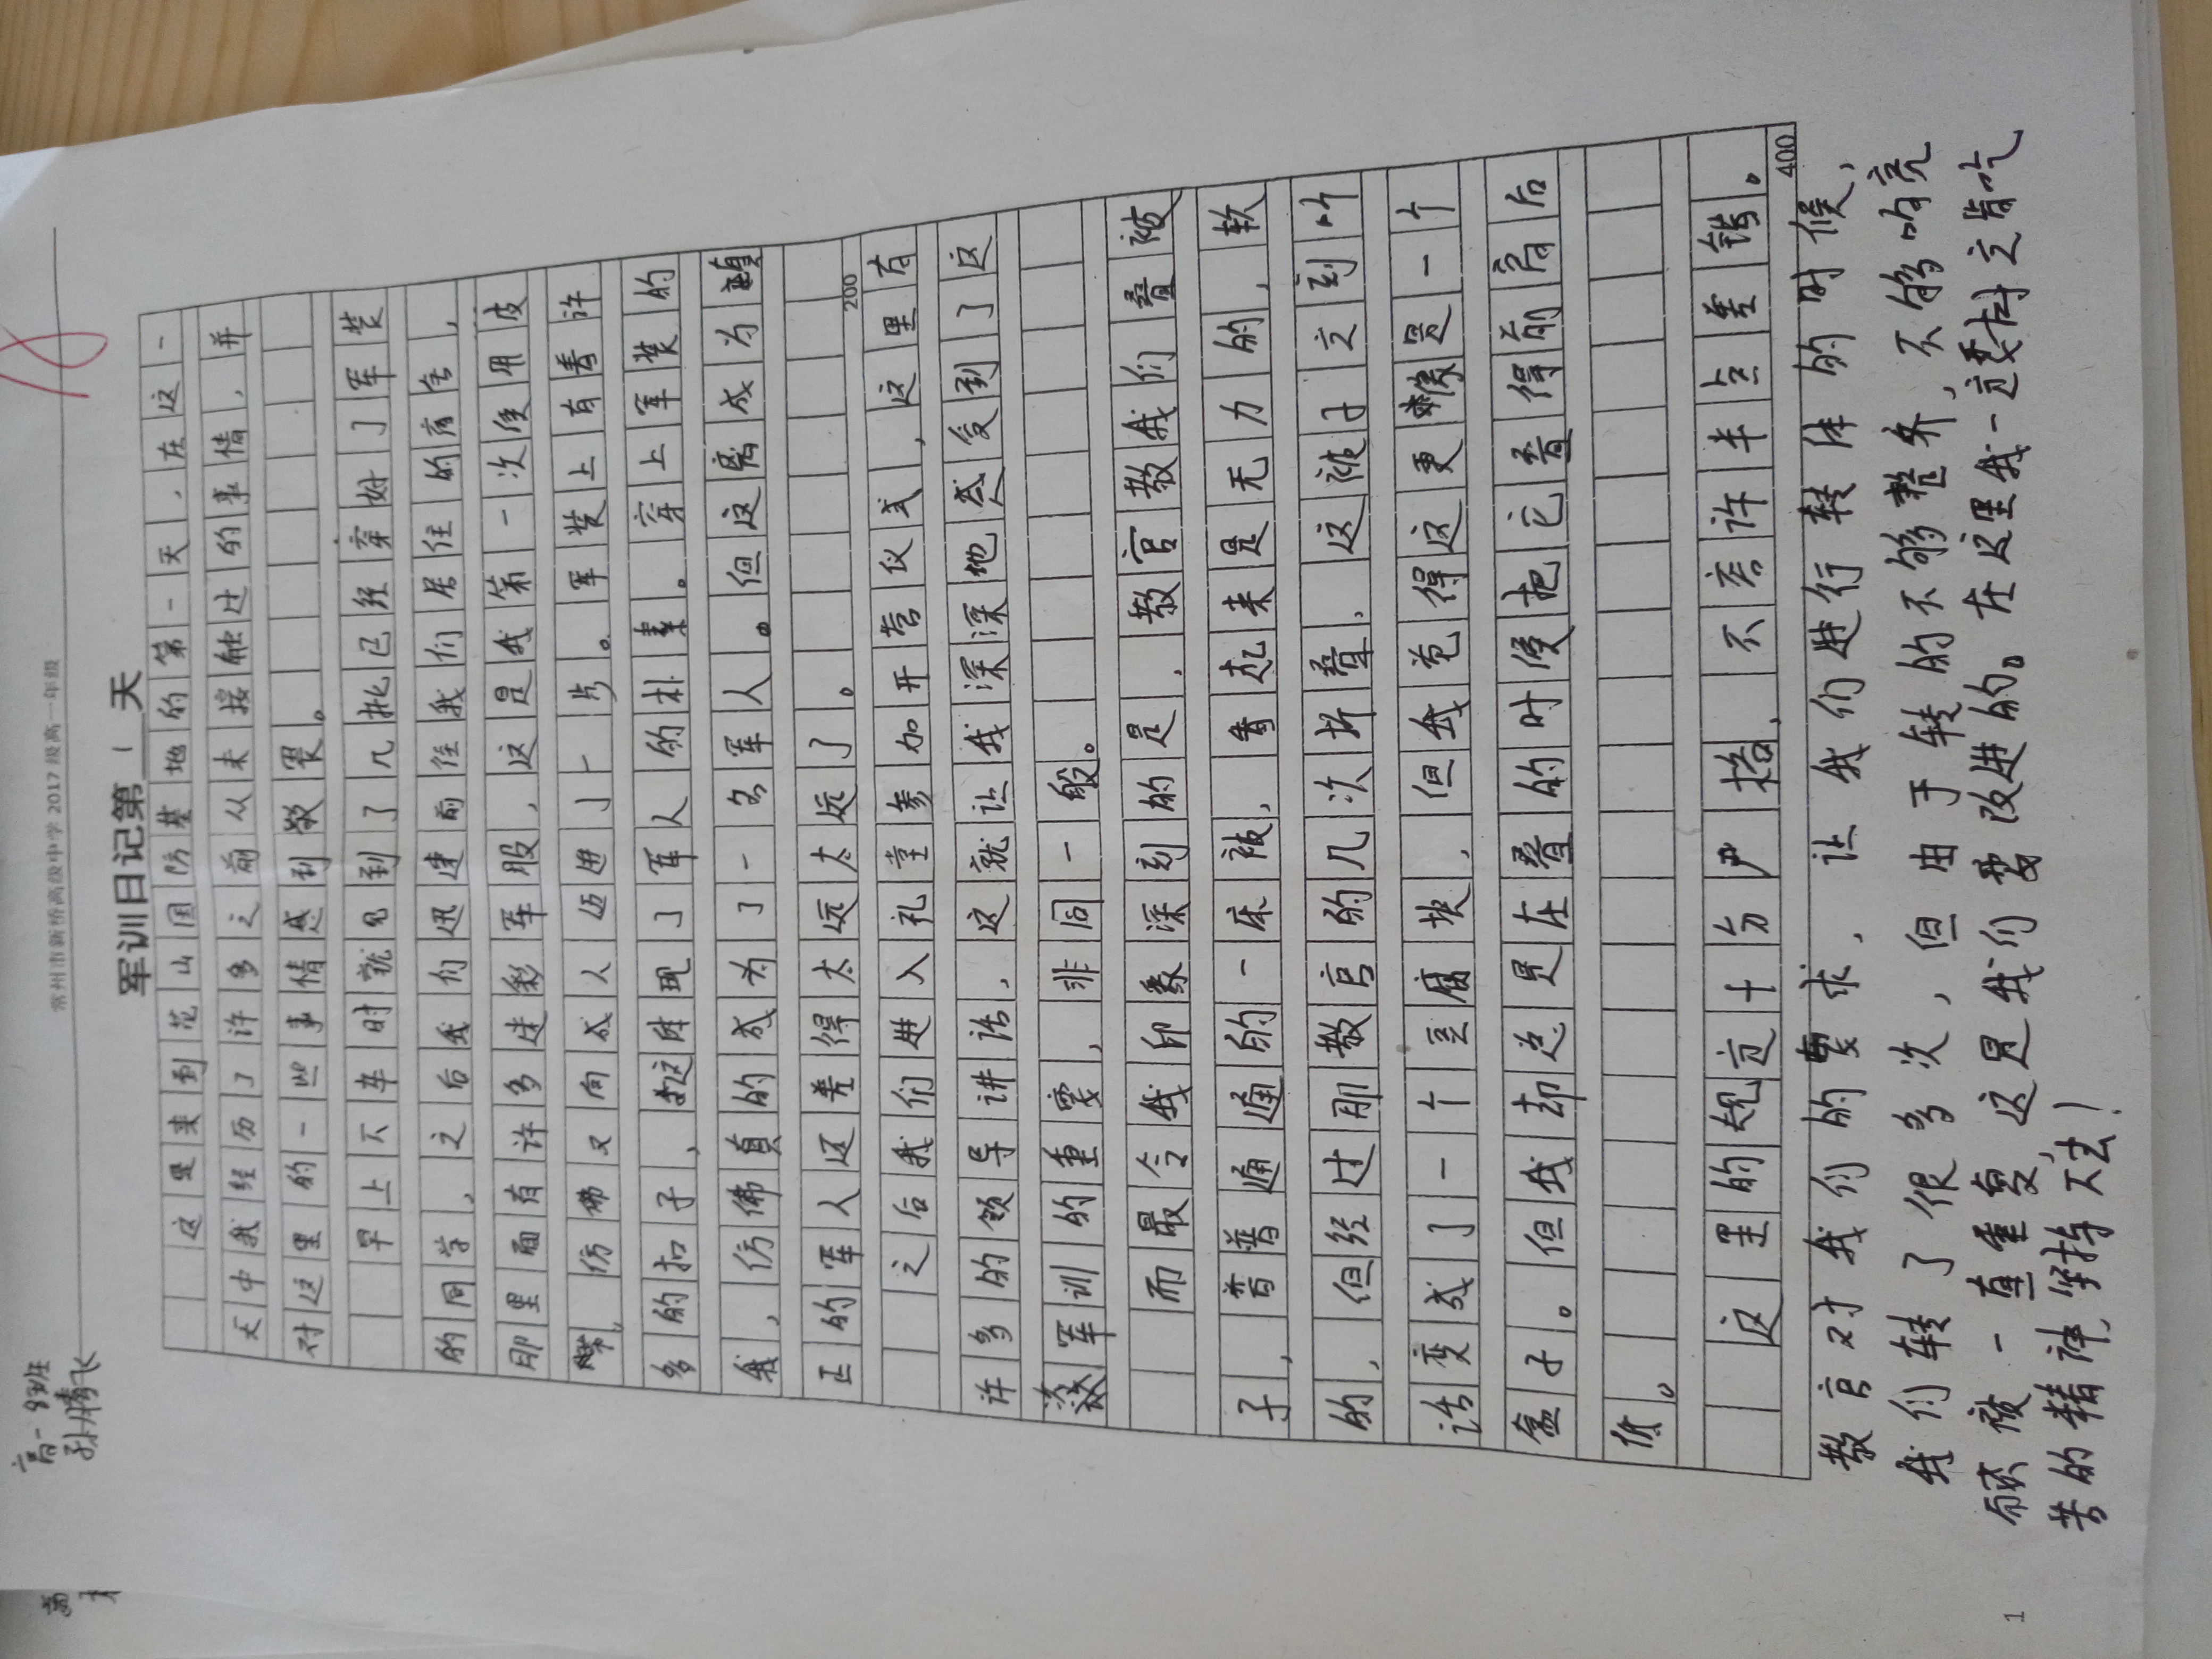 高一8班
孙腾飞
常州市新桥高级中学2017级高一年级
军训日记第1天
这是来到茫山国防基地的第一天,在这一
天中我经历了许多之前从未接触过的事情,并
对这里的一些事情感到敬畏。
早上下车时就见到了几批已经穿好了军装
的同学,之后我们迅速前往我们居住的宿舍,
那里面有许多迷彩军服,这是我第一次使用皮
带,仿佛又向成人迈进了一步。军装上有着许
多的扣子,这体现了军人的朴素。穿上军装的
我,仿佛真的成为了一名军人。但这离成为真
正的军人还差得太远太远了。
200
之后我们进入礼堂参加开营仪式,这里有
许多的领导讲话,这就让我深深地感受到了这
次军训的重要,非同一般。
而最令我印象深刻的是,教官教我们叠被
子,普普通通的一床被,看起来是无力的,软
的,但经过那教官的几次折叠,这被子立刻听
话变成了一个豆腐块,但我觉得这更像是一个
盒子。但我却总是在叠的时候把它叠得前高后
低。
这里的规定十分严格,不容许半点差错。
400
教官对我们的要求,让我们进行转体的时候,
我们转了很多次,但由于转的不够整齐,不够响亮
而被一直重复,这是我们要改进的。在这里我一定要树立肯吃
苦的精神,坚持下去!
1